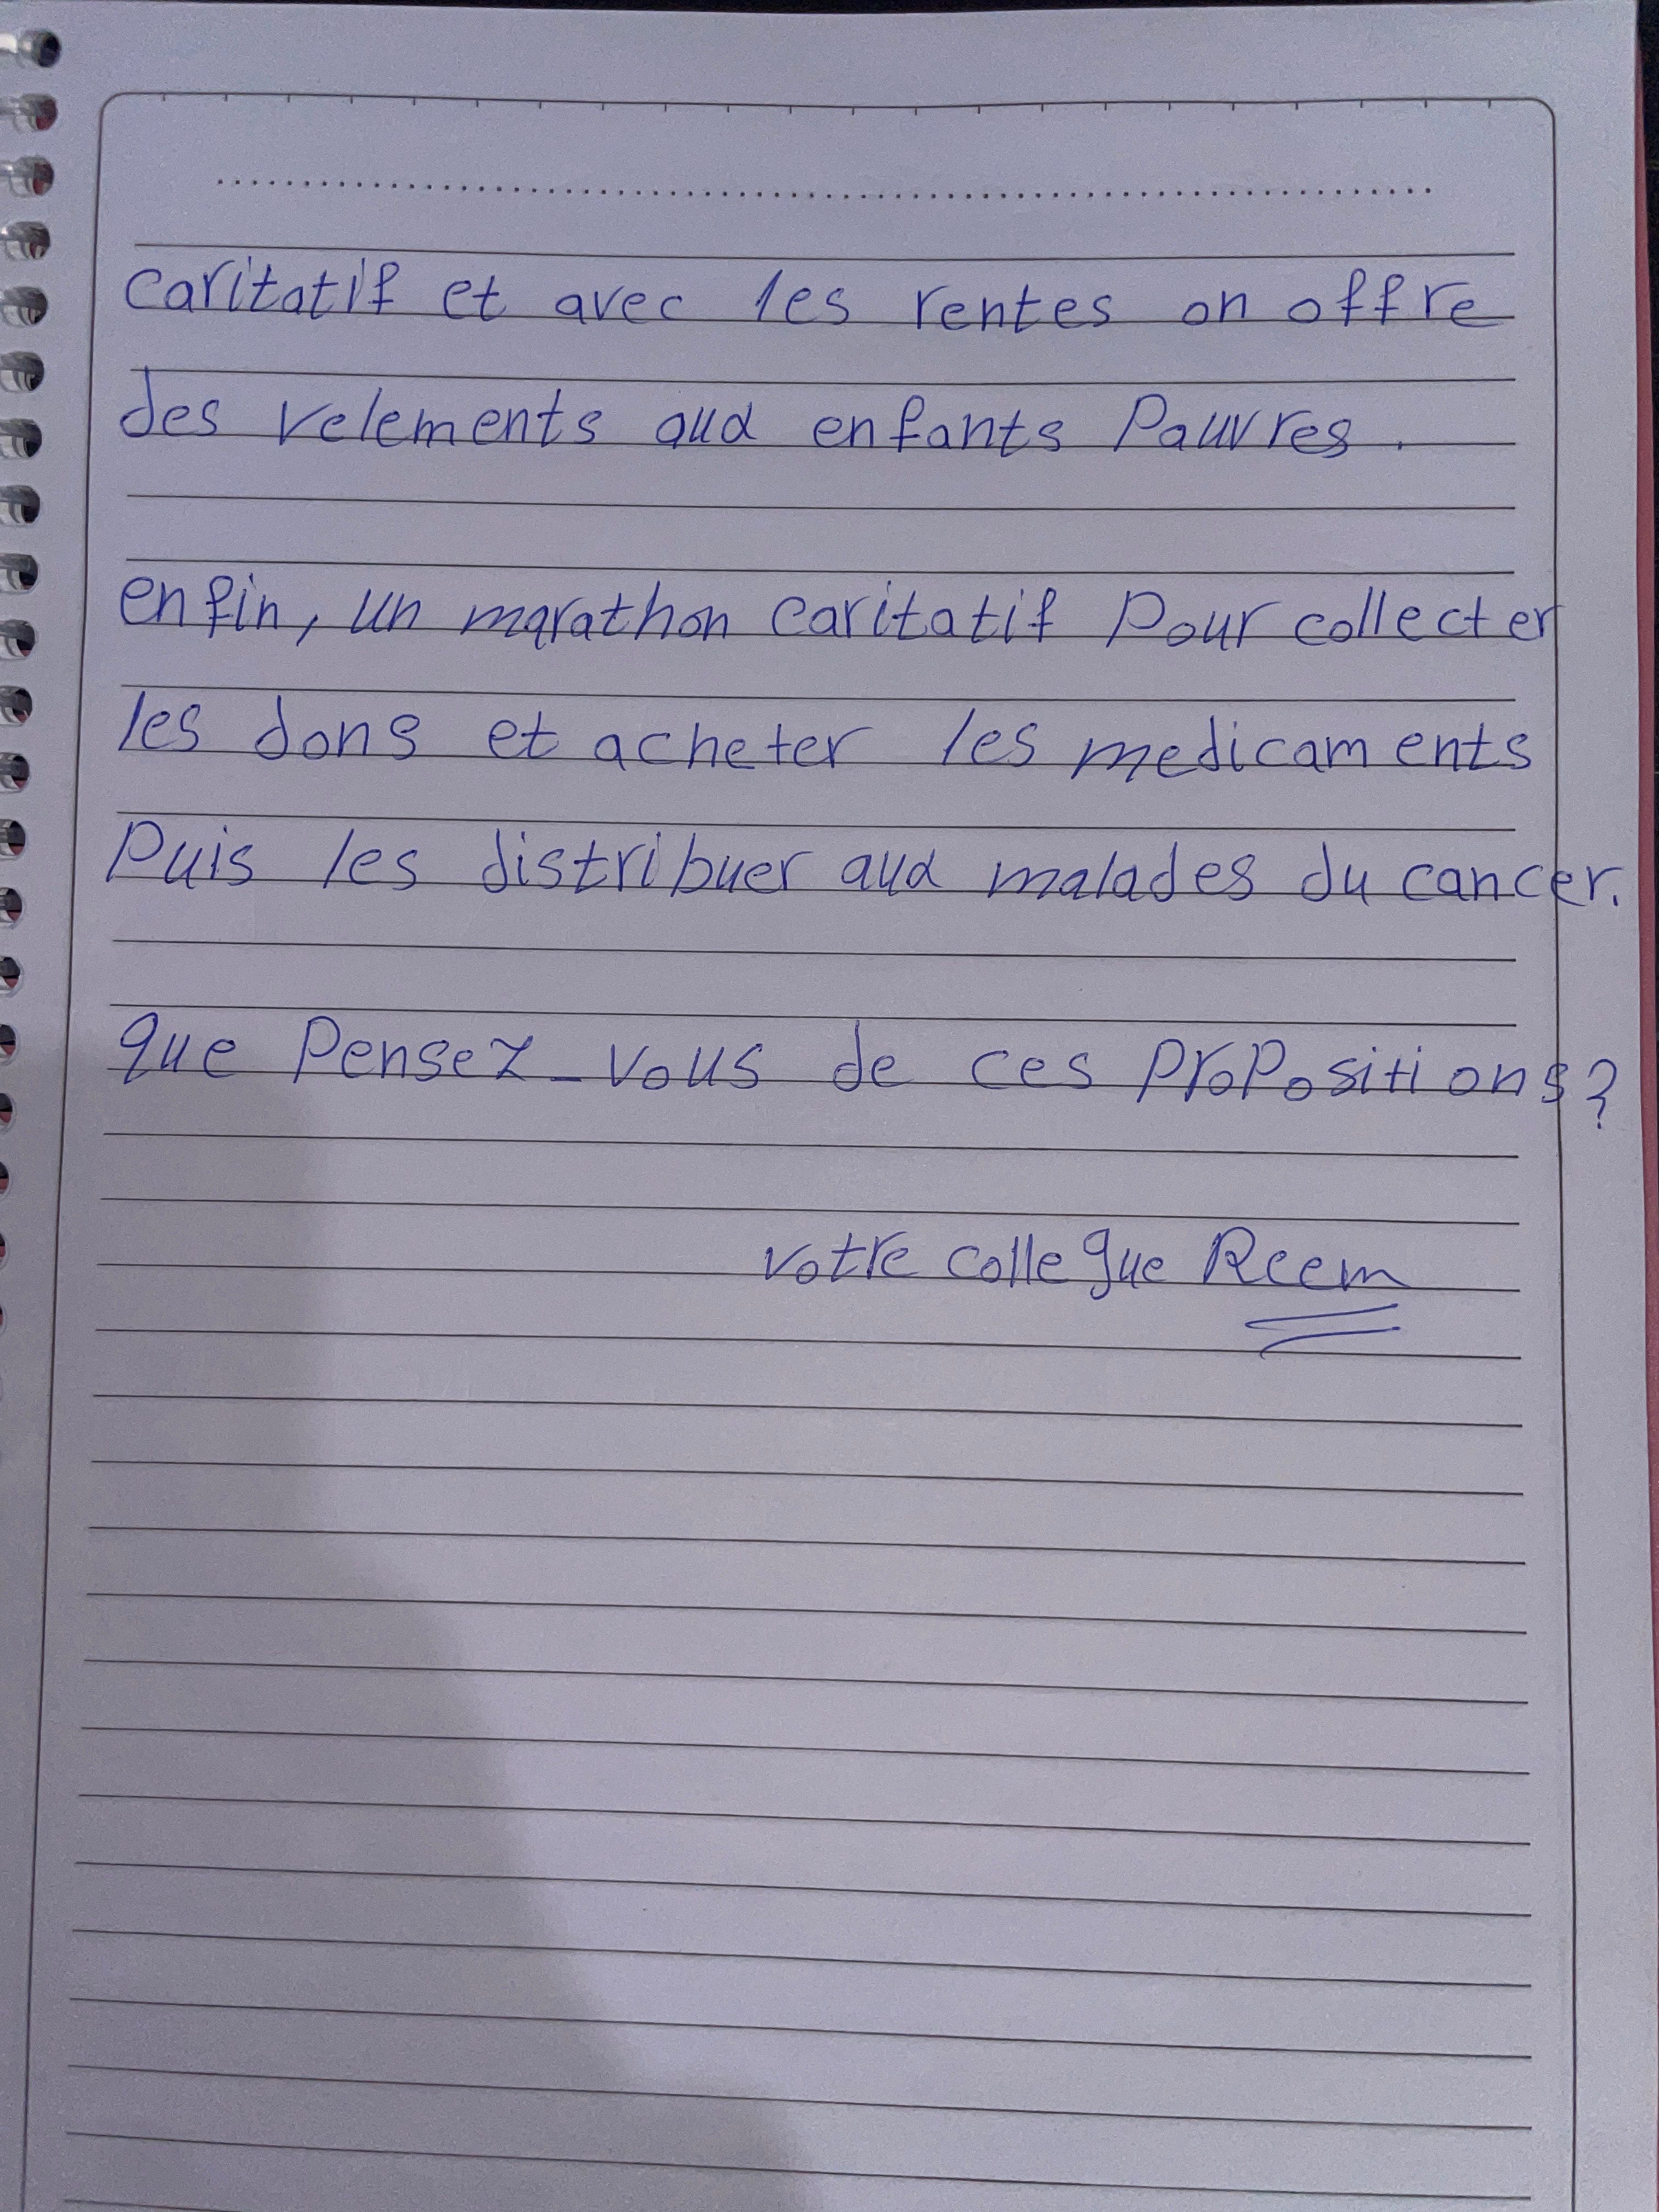 caritatif et avec les rentes on offre
des velements aux enfants Pauvres.
enfin, un marathon caritatif Pour collecter
les dons et acheter les medicaments
Puis les distribuer aux malades du cancer.
que Pensez-vous de ces ProPositions?
votre collegue Reem